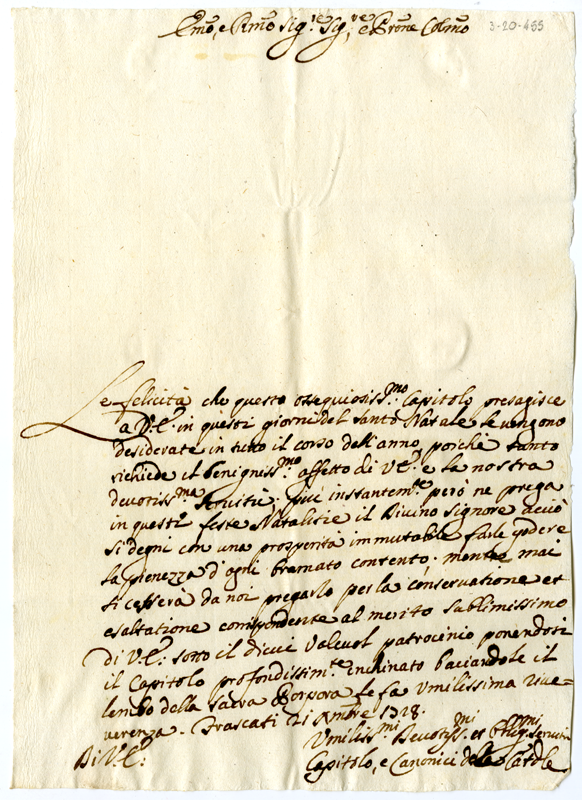 Emo, e Rmo Sig.re Sig.re e Prone Colmo
3-20-455
Le felicità che questo ossequiosiss.mo Capitolo presagisce
a V.E. in questi giorni del santo Natale le vengono
desiderate in tutto il corso dell'anno, poiche tanto
richiede il benigniss.mo affetto di V.E. e la nostra
devotiss.ma servitù; più instantem.te però ne prega
in queste feste Natalitie il Divino Signore acciò
si degni con una prosperità immutabile farle godere
la pienezza d'ogni bramato contento; mentre mai
si cesserà da noi pregarlo per la conservatione et
esaltatione corrispondente al merito sublimissimo
di V.E.: sotto il di cui valevol patrocinio ponendosi
il Capitolo profondissim.te inchinato baciandole il
lembo della sacra Porpora le fa umilissima rive=
verenza. Frascati 21 Xmbre 1728.
Di V.E:
Umiliss.mi Devotiss.mi et Obblig.mi Servitri
Capitolo, e Canonici della Catdle